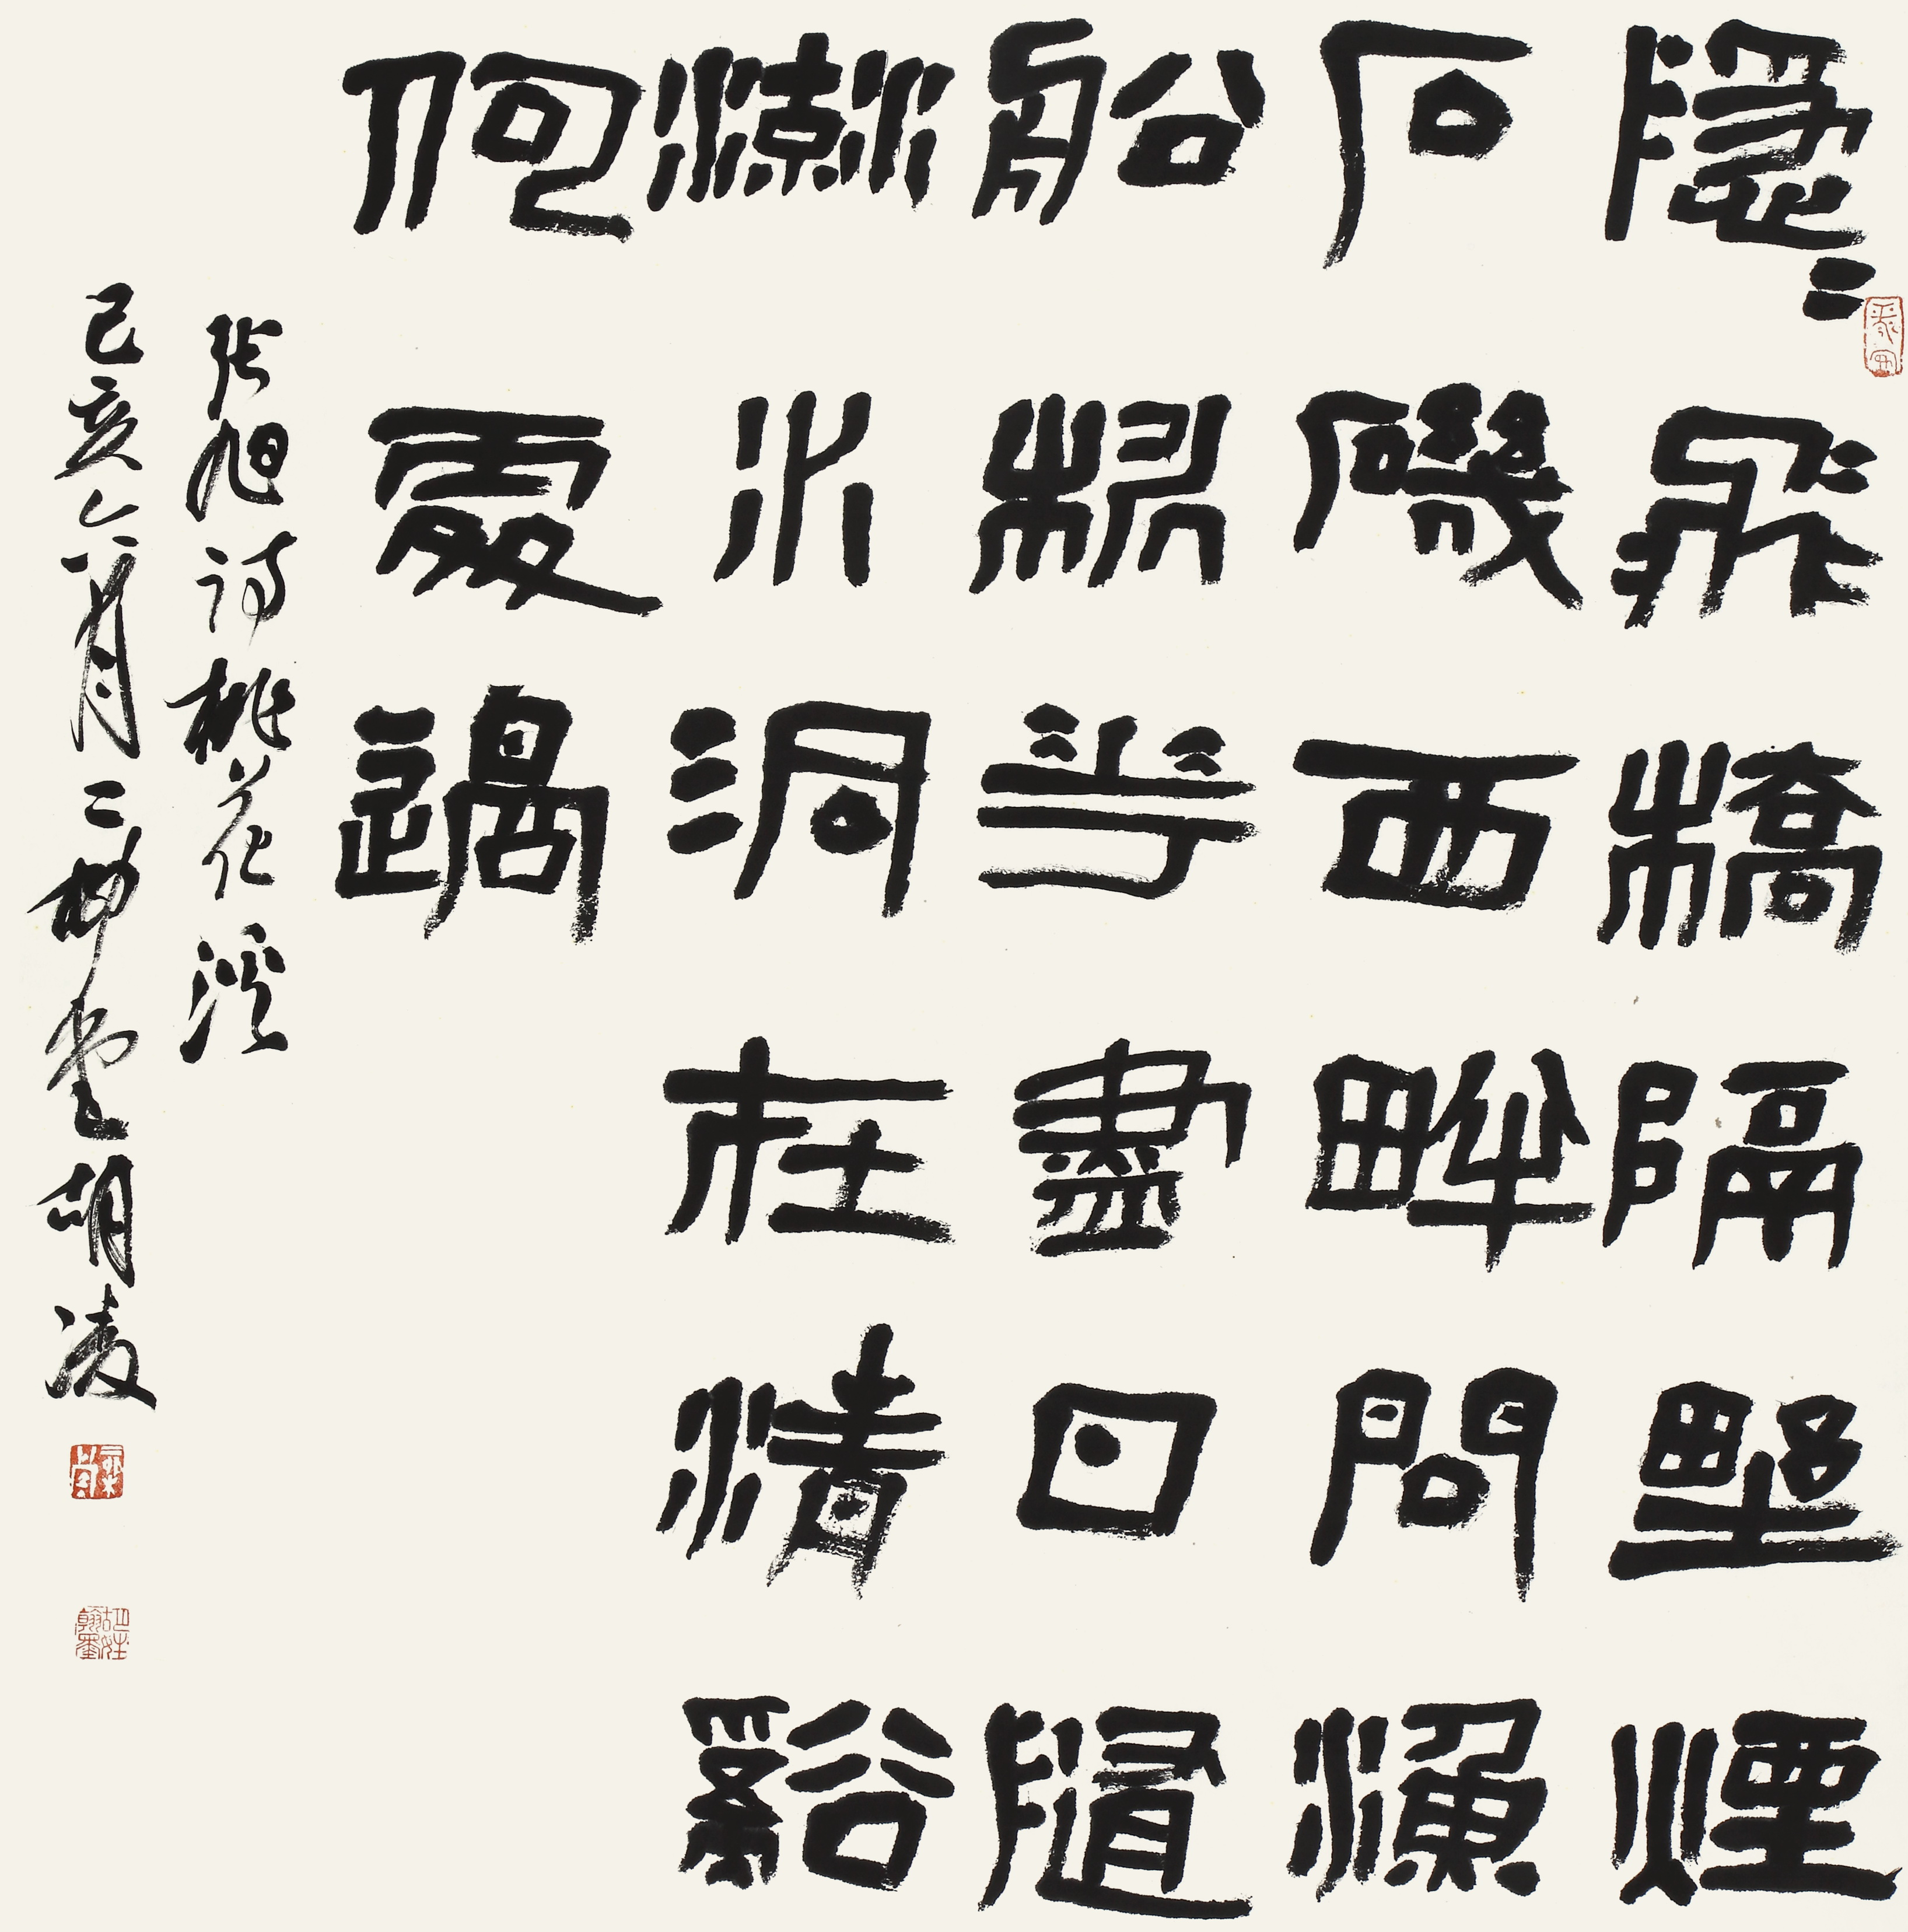 隱〻飛橋隔野煙
石磯西畔問漁
船桃華盡日隨
流水洞在清谿
何處邊
张旭诗桃花溪
己亥六月二柳堂胡凌